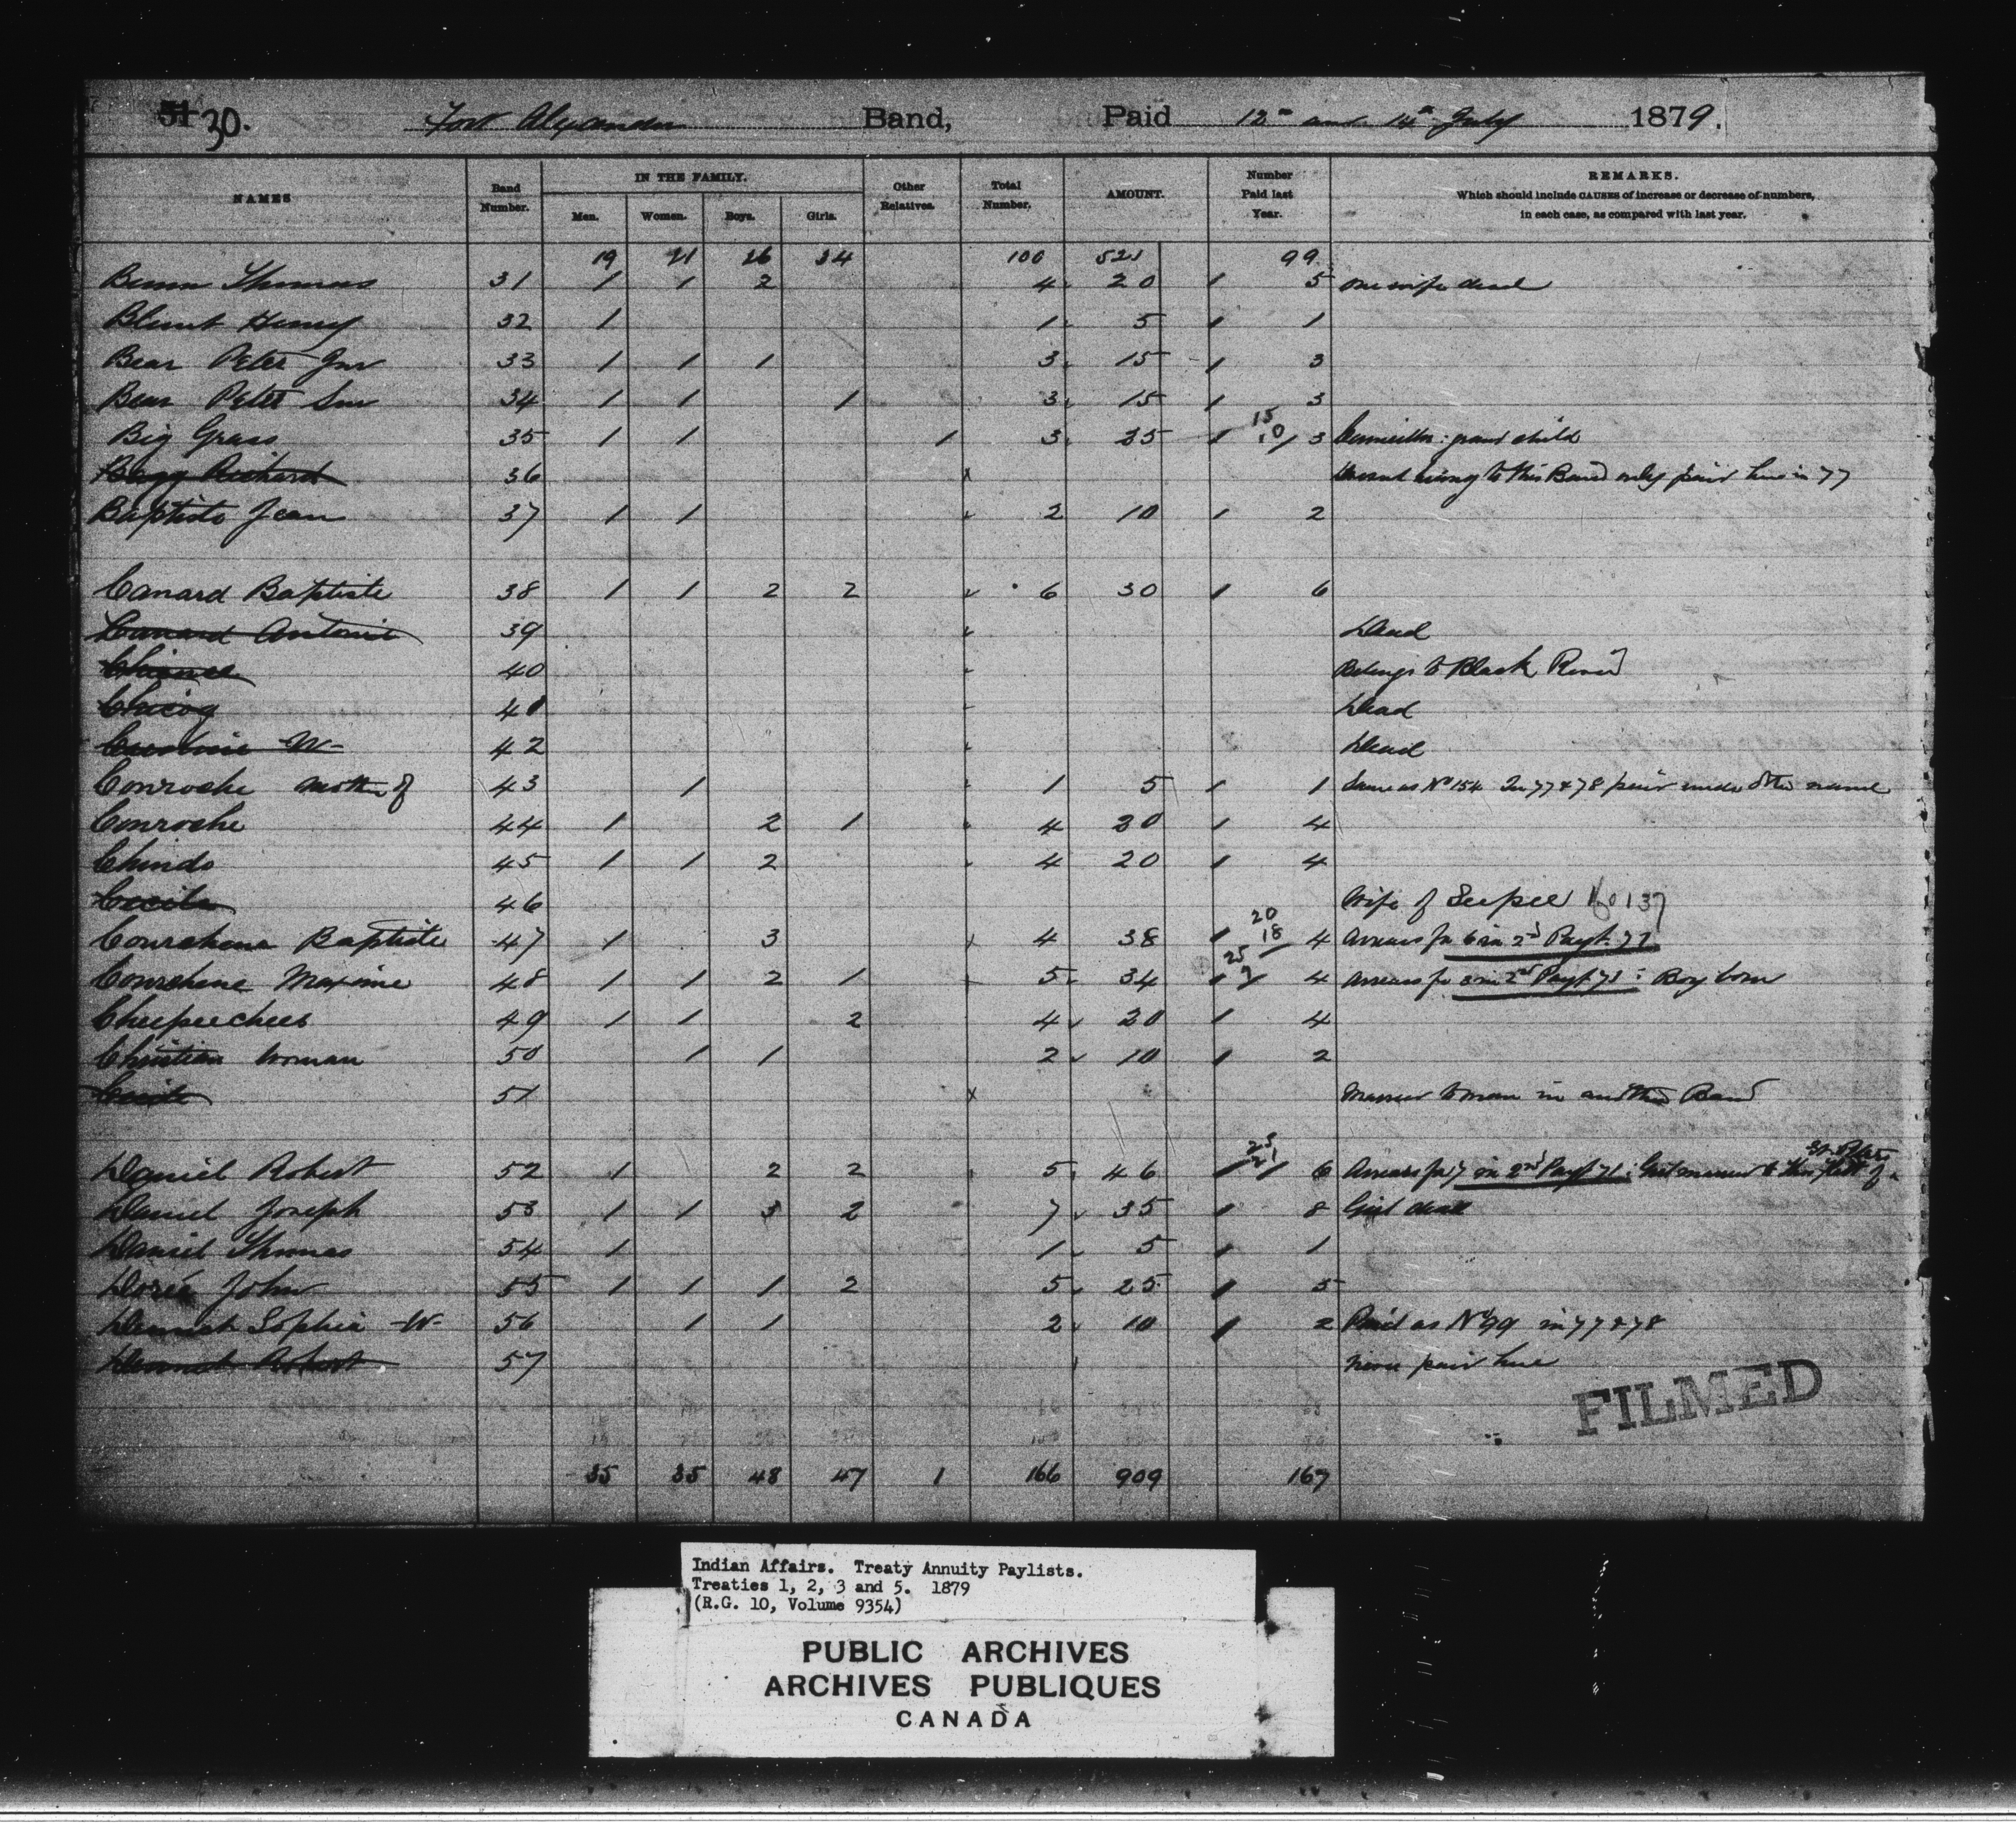 51 30.
Fort Alexander Band, Paid 12th and 14th July 1879.
NAMES Band Number. IN THE FAMILY. Men. Women. Boys. Girls. Other Relatives. Total Number. AMOUNT. Number Paid last Year. REMARKS. Which should include CAUSES of increase or decrease of numbers, in each case, as compared with last year.
19 21 26 34 100 521 99
Bunn Thomas 31 1 1 2 4 20 1 5 one wife dead
Blunt Henry 32 1 1 5 1 1
Bear Peter Jnr 33 1 1 1 3 15 1 3
Bear Peter Snr 34 1 1 1 3 15 1 3
Big Grass 35 1 1 1 3 25 1 15 10/ 3 Councillor: grand child
Richard 36 x to this Band only paid here in 77
Baptiste Jean 37 1 1 2 10 1 2
Canard Baptiste 38 1 1 2 2 6 30 1 6
Canard Antoine 39 Dead
40 Belongs to Black River
Chicog 41 Dead
W- 42 Dead
Conroche mother of 43 1 1 5 1 1 Same as No 154 In 77 & 78 paid under other name
Conroche 44 1 2 1 4 20 1 4
Chindo 45 1 1 2 4 20 1 4
Cecile 46 Wife of Seepee No 137
Courchene Baptiste 47 1 3 4 38 1 20 18/ 4 Arrears for 6 in 2nd Payt 71
Courchene Maxime 48 1 1 2 1 5 34 1 25 9/ 4 Arrears for 3 in 2nd Payt 71: Boy born
Cheepeechees 49 1 1 2 4 20 1 4
Christian Woman 50 1 1 2 10 1 2
Cecile 51 x Married to man in another Band
Daniel Robert 52 1 2 2 5 46 1 25 21/ 6 Arrears for 7 in 2nd Payt 71: Girl married to of St. Peters
Daniel Joseph 53 1 1 3 2 7 35 1 8 Girl dead
Daniel Thomas 54 1 1 5 1 1
John 55 1 1 1 2 5 25 1 5
Sophia -W- 56 1 1 2 10 1 2 Paid as No 99 in 77 & 78
Robert 57 Never paid here
35 35 48 47 1 166 909 167
FILMED
Indian Affairs. Treaty Annuity Paylists.
Treaties 1, 2, 3 and 5. 1879
(R.G. 10, Volume 9354)
PUBLIC ARCHIVES
ARCHIVES PUBLIQUES
CANADA